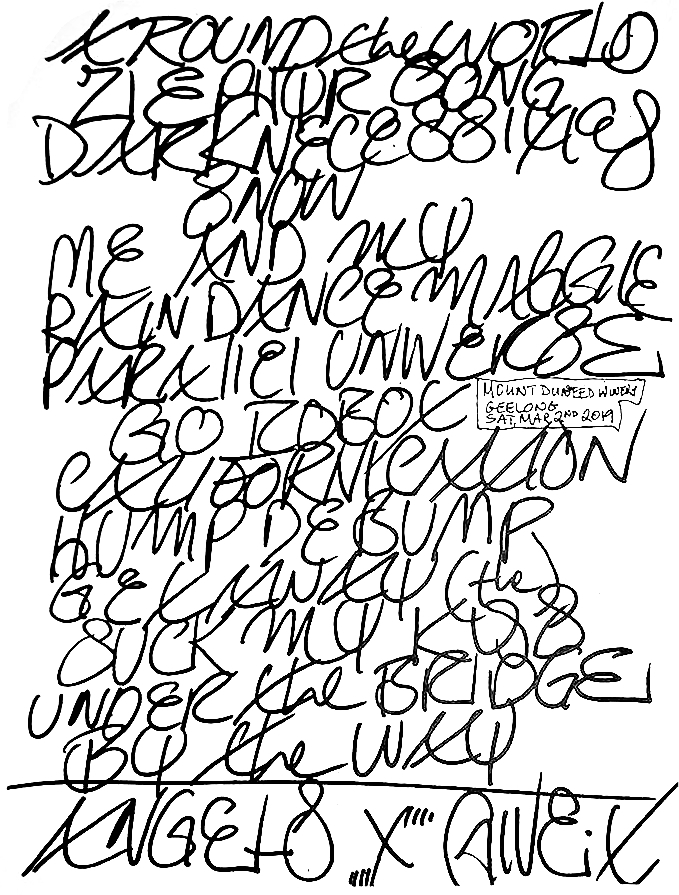 AROUND the WORLD
ZEPHYR SONG
DARK NECESSITIES
SNOW
ME AND MY
RAIN DANCE MAGGIE
PARAllEl UNIVERSE
GO ROBOT
MOUNT DUNEED WINERY
GEELONG
SAT, MAR 2ND 2019
CALIFORNICATION
HUMP DE BUMP
GET AWAY (the)
SUCK MY KISS
UNDER the BRIDGE
BY the WAY
ANGELS
X